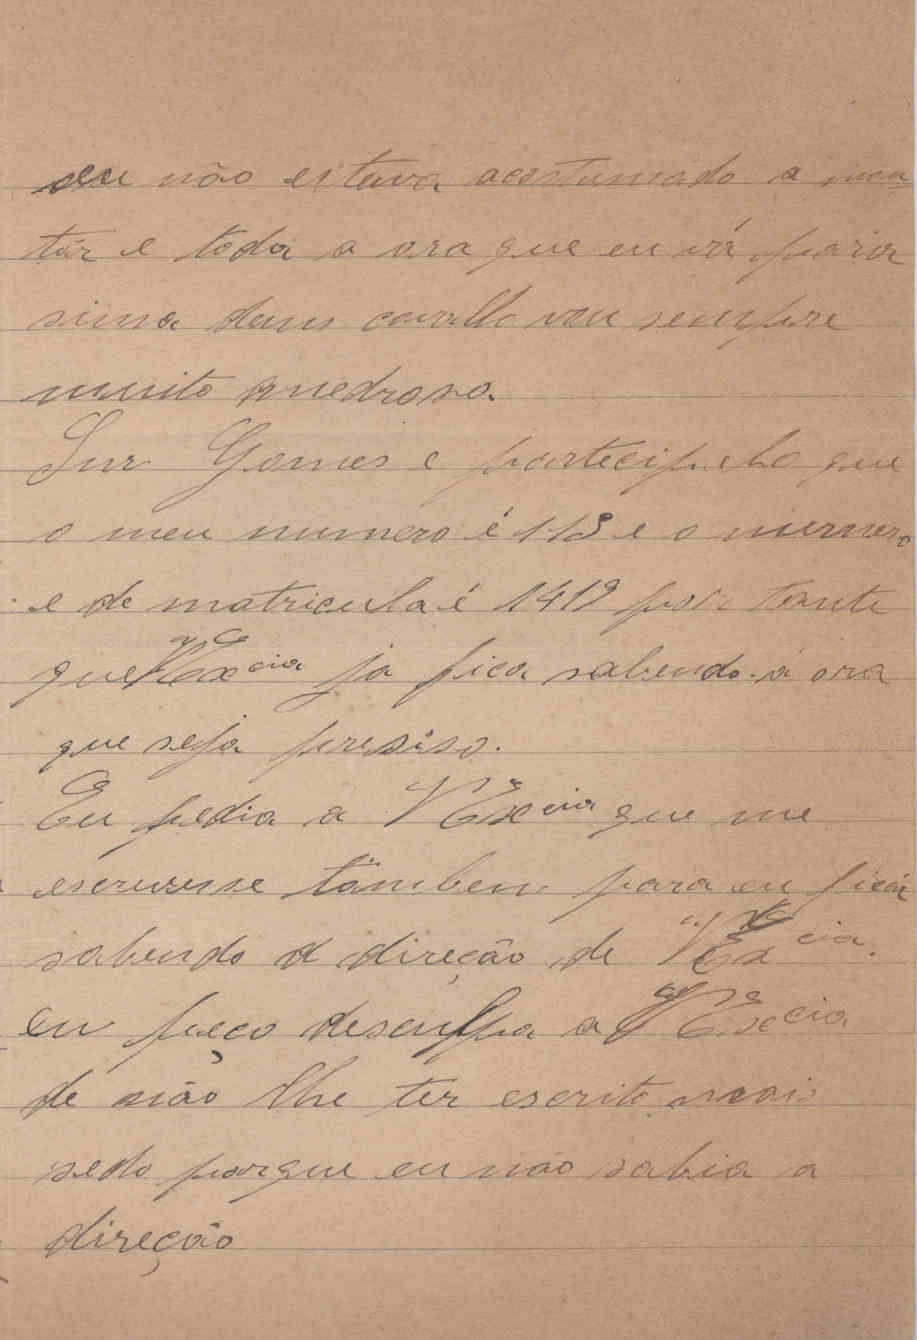 eu não estava acostumado a mon=
tár e toda a ora que eu vá para
sima dum cavallo vou sempre
muito medroso.
Snr Gomes e partecipelho que
o meu numero é 113 e o numero
e de matricula é 1419 por tante
que VExcia ja fica sabendo á ora
que seja presiso.
Eu pedia a VExcia que me
escrevese também para eu ficár
sabendo a direção de VExcia.
eu peço desculpa a VExcia
de não lhe ter escrito mais
sedo porque eu não sabia a
direção